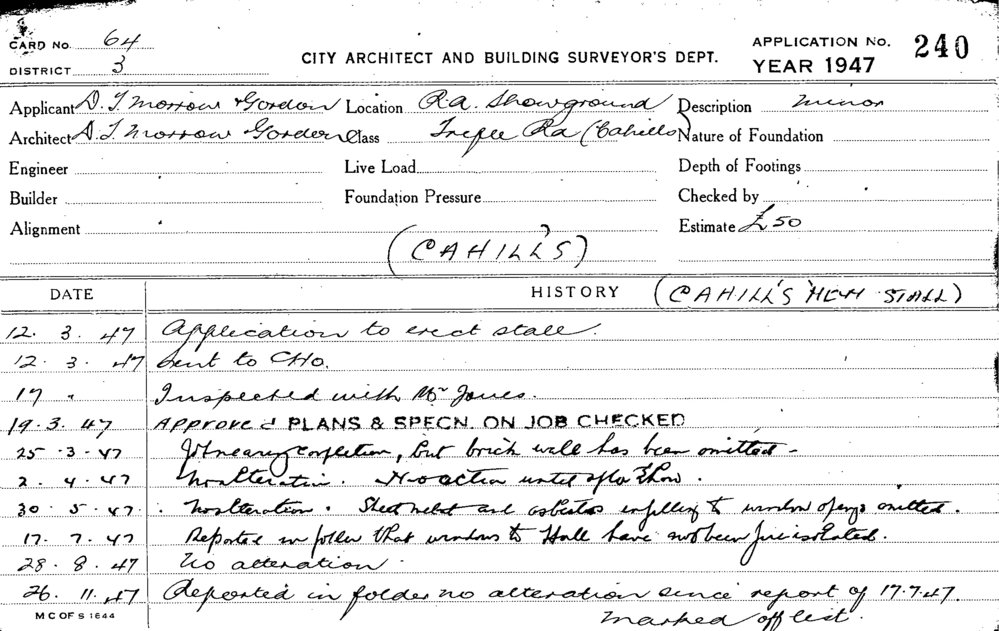 CARD No. 64
DISTRICT 3
CITY ARCHITECT AND BUILDING SURVEYOR'S DEPT.
APPLICATION No. 240
YEAR 1947
Applicant D. T. Morrow & Gordon Location R.A. Showground Description minor
Architect D. T. Morrow & Gordon Class Ra (Cahills) Nature of Foundation
Engineer Live Load Depth of Footings
Builder Foundation Pressure Checked by
Alignment Estimate £50
(CAHILL'S)
DATE HISTORY (CAHILL'S STALL)
12. 3. 47 Application to erect stall.
12. 3. 47 Sent to CHO.
17 " Inspected with Mr Jones.
19. 3. 47 Approved PLANS & SPECN. ON JOB CHECKED
25 . 3 . 47 Job nearing completion, but brick wall has been omitted -
2 . 4 . 47 No alteration. No action until after Show.
30 . 5 . 47. No alteration. Sheet metal and asbestos infilling to window openings omitted.
17. 7. 47 Reported in folder that windows to Hall have not been fire isolated.
28. 8. 47 No alteration.
26. 11. 47 Reported in folder no alteration since report of 17.7.47.
M C OF S 1644 Marked off list.